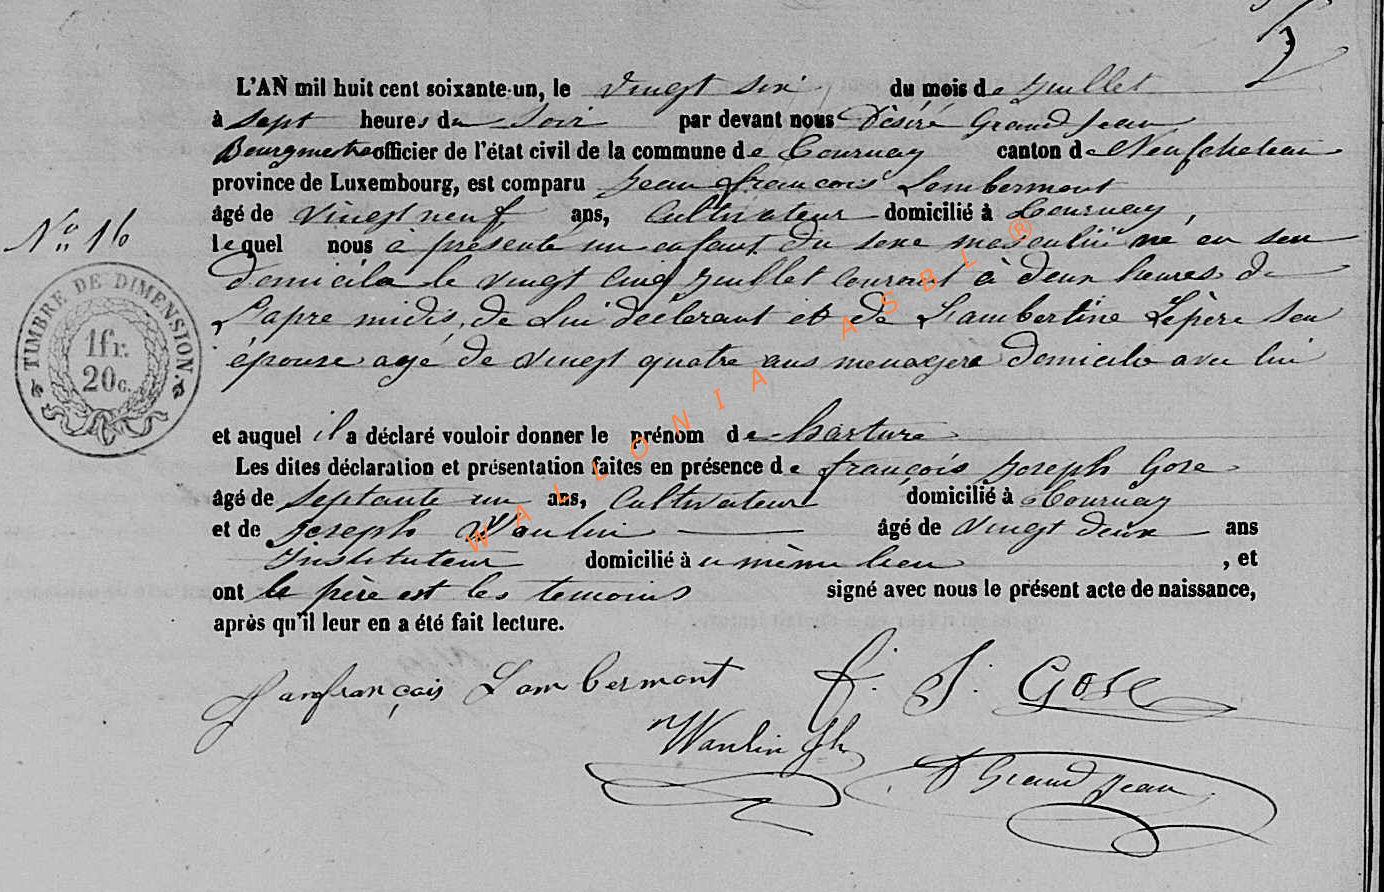 L'AN mil huit cent soixante-un, le vingt six du mois de juillet
à sept heures du soir par devant nous Désiré Grand Jean
Bourgmestre officier de l'état civil de la commune de Tournay canton de Neufchateau
province de Luxembourg, est comparu Jean françois Lambermont
âgé de vingt neuf ans, Cultivateur domicilié à Tournay,
lequel nous a présenté un enfant du sexe masculin né en son
domicile le vingt cinq juillet courant à deux heures de
L'apre midis, de Lui déclarant et de Lambertine Lépère son
épouse agé de vingt quatre ans menagere domicile avec lui
N° 16
TIMBRE DE DIMENSION.
1fr.
20c.
et auquel il a déclaré vouloir donner le prénom de harture
Les dites déclaration et présentation faites en présence de françois Joseph Gose
âgé de septante un ans, Cultivateur domicilié à Tournay
et de Joseph Wanlin âgé de vingt deux ans
Instituteur domicilié à u même lieu, et
ont le père est les temoins signé avec nous le présent acte de naissance,
après qu'il leur en a été fait lecture.
Janfrançois Lambermont f. J. Gose
Wanlin Jh
D Grand Jean
WALLONIA ASBL ®